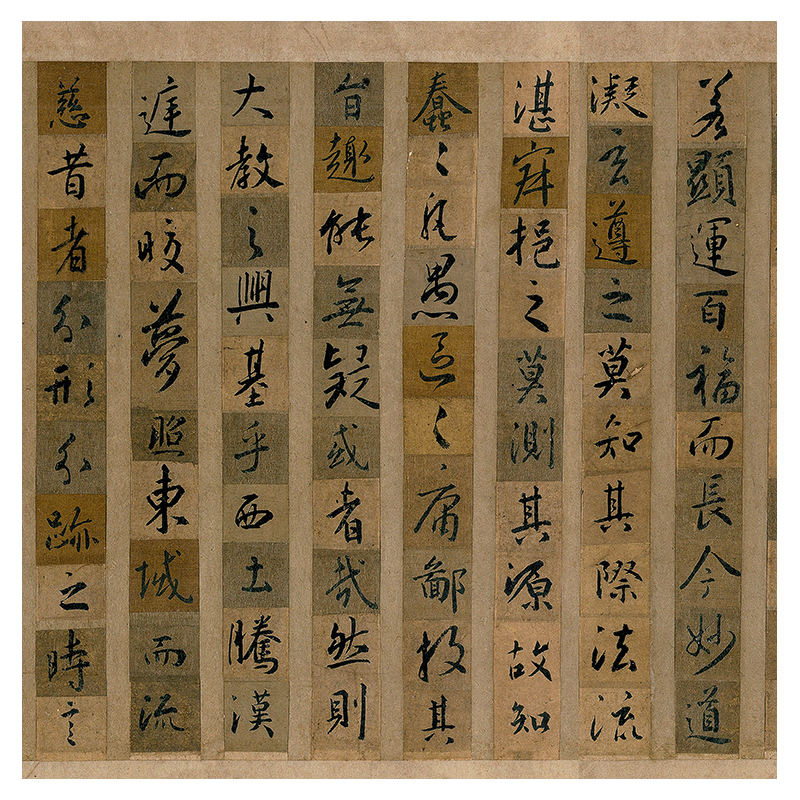 若顯運百福而長今妙道
凝玄遵之莫知其際法流
湛寂挹之莫測其源故知
蠢〻凡愚區〻庸鄙投其
旨趣能無疑或者哉然則
大教之興基乎西土騰漢
庭而皎夢照東域而流
慈昔者分形分跡之時言